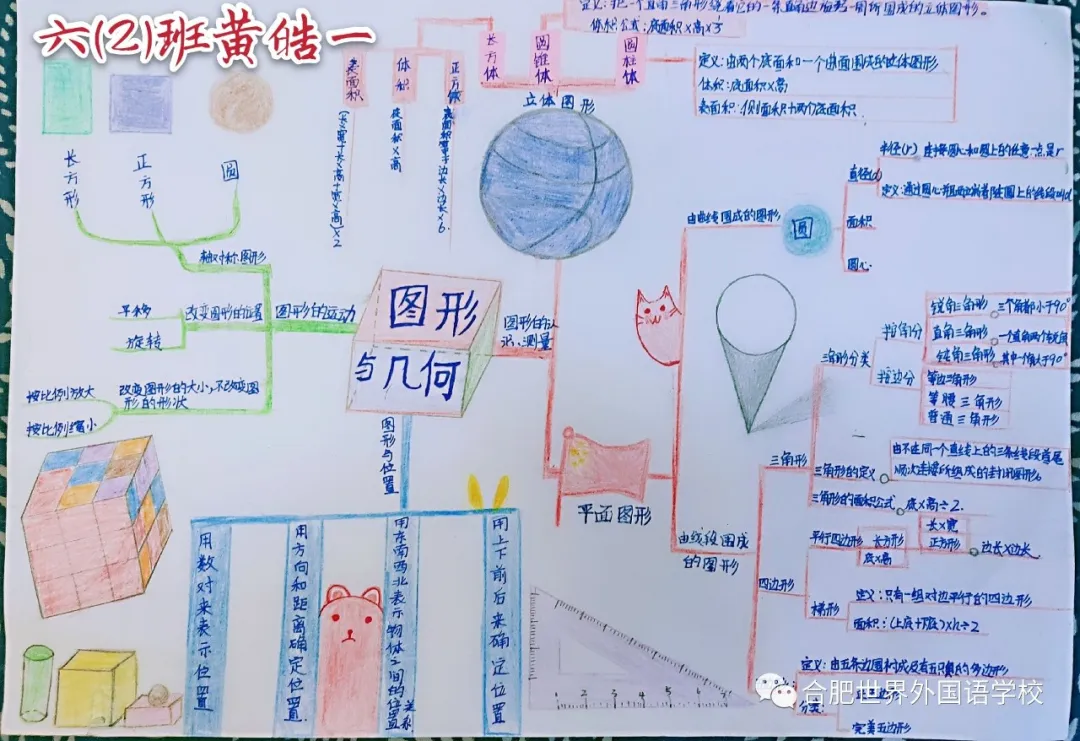 六(2)班黄皓一
长方形
正方形
圆
轴对称图形
平移
旋转
改变图形的位置
图形的运动
按比例放大
按比例缩小
改变图形的大小,不改变图
形的形状
图形
与几何
图形的认
识、测量
立体图形
长方体
圆锥体
圆柱体
表面积
体积
正方体
(长×宽+长×高+宽×高)×2
底面积×高
定义:把一个直角三角形绕着它的一条直角边旋转一周所围成的立体图形。
体积公式:底面积×高×
定义:由两个底面和一个曲面围成的立体图形
体积:底面积×高
表面积:侧面积+两个底面积
由曲线围成的图形
圆
半径(r)
直径(d)
面积
圆心
平面图形
由线段围成
的图形
三角形
三角形分类
按角分
锐角三角形
三个角都小于90°
直角三角形
钝角三角形
其中一个角大于90°
按边分
等边三角形
等腰三角形
普通三角形
三角形的定义
由不在同一个直线上的三条线段首尾
顺次连接所组成的封闭图形。
三角形的面积公式
底×高÷2
四边形
平行四边形
长方形
长×宽
正方形
边长×边长
底×高
梯形
定义:只有一组对边平行的四边形
面积:(上底+下底)×h÷2
分类:
完美五边形
图形与位置
用数对来表示位置
用方向和距离确定位置
用东南西北表示物体之间的位置关系
用上下前后来确定位置
1 2 3 4 5 6
合肥世界外国语学校